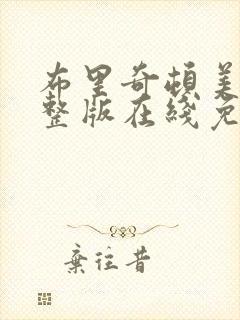 布里奇顿美
整版在线免
弃往昔